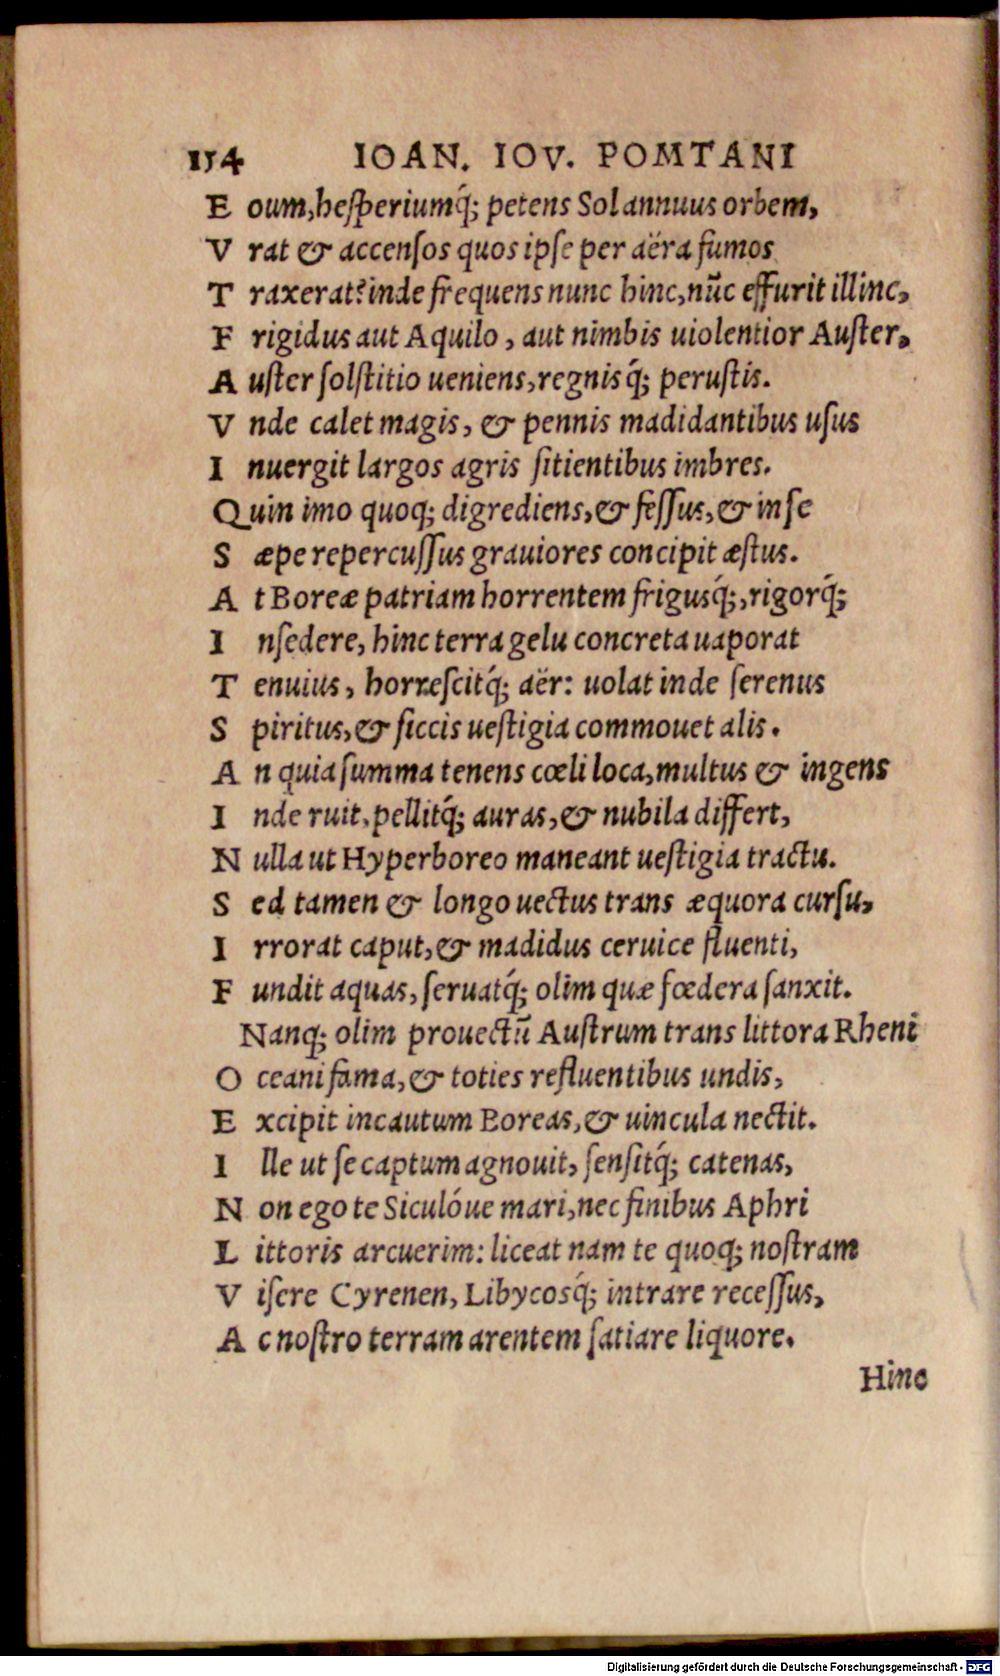 154 IOAN. IOV. POMTANI
E oum, hesperiumq́; petens Sol annuus orbem,
V rat & accensos quos ipse per aëra fumos
T raxerat? inde frequens nunc hinc, nūc effurit illinc,
F rigidus aut Aquilo, aut nimbis uiolentior Auster,
A uster solstitio ueniens, regnisq́; perustis.
V nde calet magis, & pennis madidantibus usus
I nuergit largos agris sitientibus imbres.
Quin imo quoq; digrediens, & fessus, & in se
S æpe repercussus grauiores concipit æstus.
A t Boreæ patriam horrentem frigusq́;, rigorq́;
I nsedere, hinc terra gelu concreta uaporat
T enuius, horrescitq́; aër: uolat inde serenus
S piritus, & siccis uestigia commouet alis.
A n quia summa tenens cœli loca, multus & ingens
I nde ruit, pellitq́; auras, & nubila differt,
N ulla ut Hyperboreo maneant uestigia tractu.
S ed tamen & longo uectus trans æquora cursu,
I rrorat caput, & madidus ceruice fluenti,
F undit aquas, seruatq́; olim quæ fœdera sanxit.
Nanq; olim prouectū Austrum trans littora Rheni
O ceani fama, & toties refluentibus undis,
E xcipit incautum Boreas, & uincula nectit.
I lle ut se captum agnouit, sensitq́; catenas,
N on ego te Siculóue mari, nec finibus Aphri
L ittoris arcuerim: liceat nam te quoq; nostram
V isere Cyrenen, Libycosq́; intrare recessus,
A c nostro terram arentem satiare liquore.
Hinc
Digitalisierung gefördert durch die Deutsche Forschungsgemeinschaft - DFG